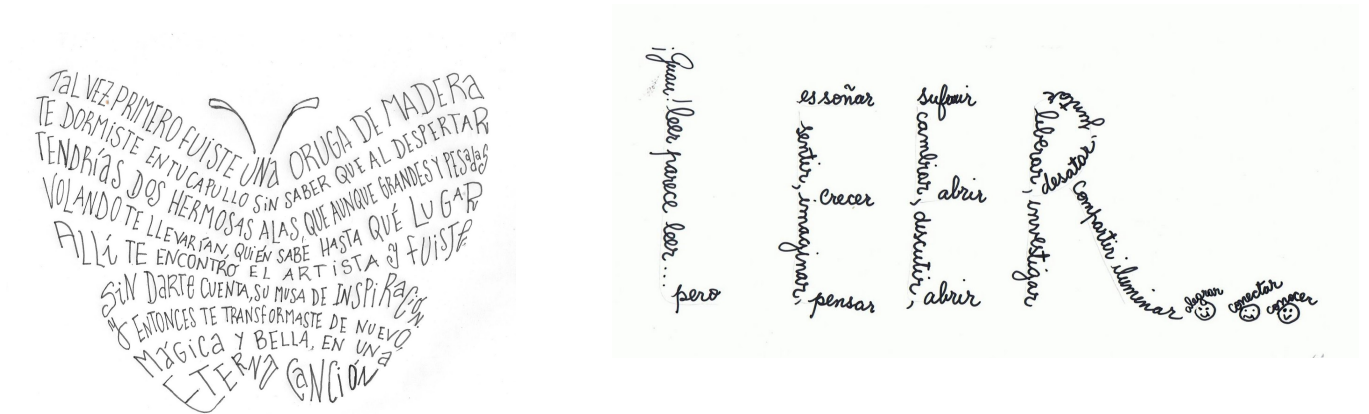 TaL VEZ PRIMERO FUISTE UNa ORUGA DE MADERa
TE DORMISTE EN TU CAPULLO SIN SABER QUE AL DESPERTAR
TENDRÍAS DOS HERMOSAS ALAS, QUE AUNQUE GRANDES Y PESaDaS
VOLANDO TE LLEVARÍAN, QUIÉN SABE HASTA QUÉ LUGAR
ALLÍ TE ENCONTRÓ EL ARTISTA y FUISTE
SIN DaRTE CUENTA, SU MUSA DE INSPIRaCIÓN.
y ENTONCES TE TRANSFORMASTE DE NUEVO,
MÁGICa Y BELLA, EN UNa
ETERNa CaNCIÓN
¡Guau! leer parece leer... pero
es soñar
sentir, imaginar,
crecer
pensar
sufrir
cambiar, discutir,
abrir
abrir
liberar, investigar
juntar,
desatar
compartir iluminar
alegrar
conectar
conocer